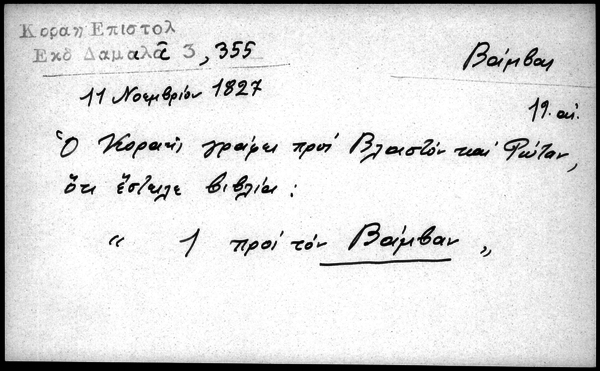 Κοραη Επιστολ
Εκδ Δαμαλᾶ 3, 355
Βάμβας
11 Νοεμβρίου 1827
19. αἰ.
Ὁ Κοραῆς γράφει πρός Βλαστόν καί Ρώταν,
ὅτι ἔστειλε βιβλία:
" 1 πρός τόν Βάμβαν "